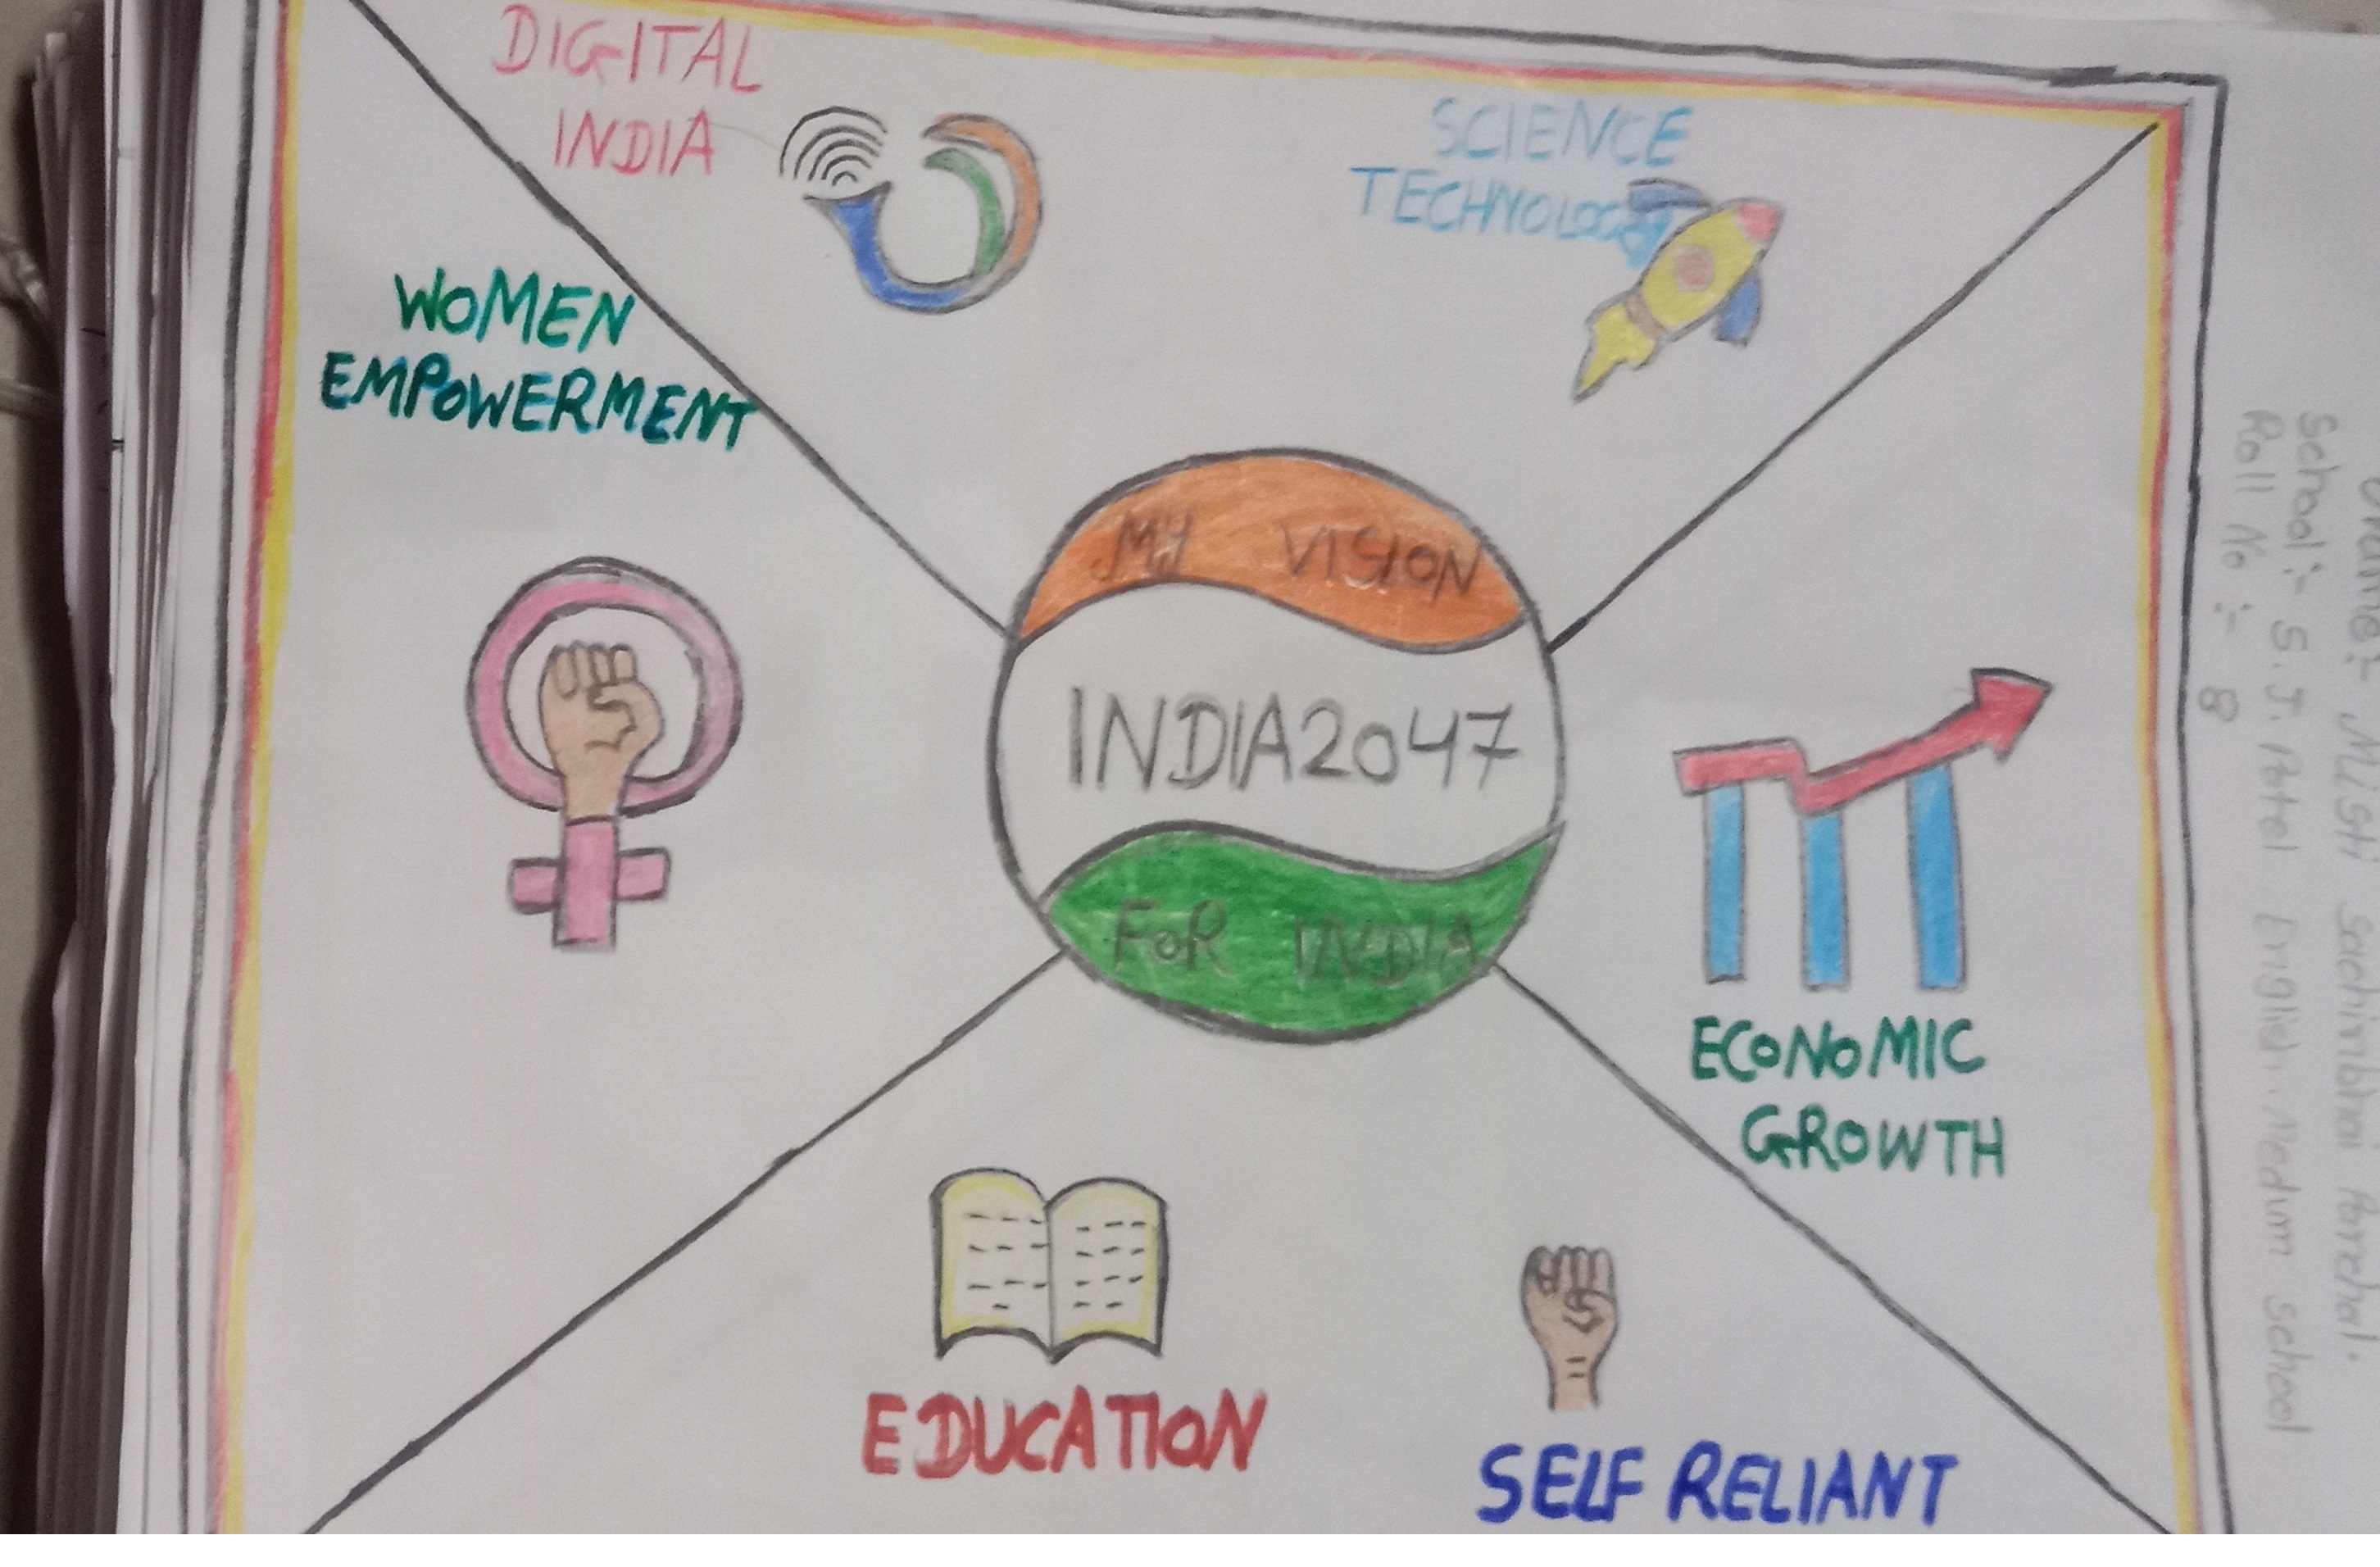 DIGITAL
INDIA
SCIENCE
TECHNOLOGY
WOMEN
EMPOWERMENT
MY VISION
INDIA2047
FOR INDIA
ECONOMIC
GROWTH
EDUCATION
SELF RELIANT
Misti Sachinbhai
School :- S. J. Patel English Medium School
Roll No :- 8